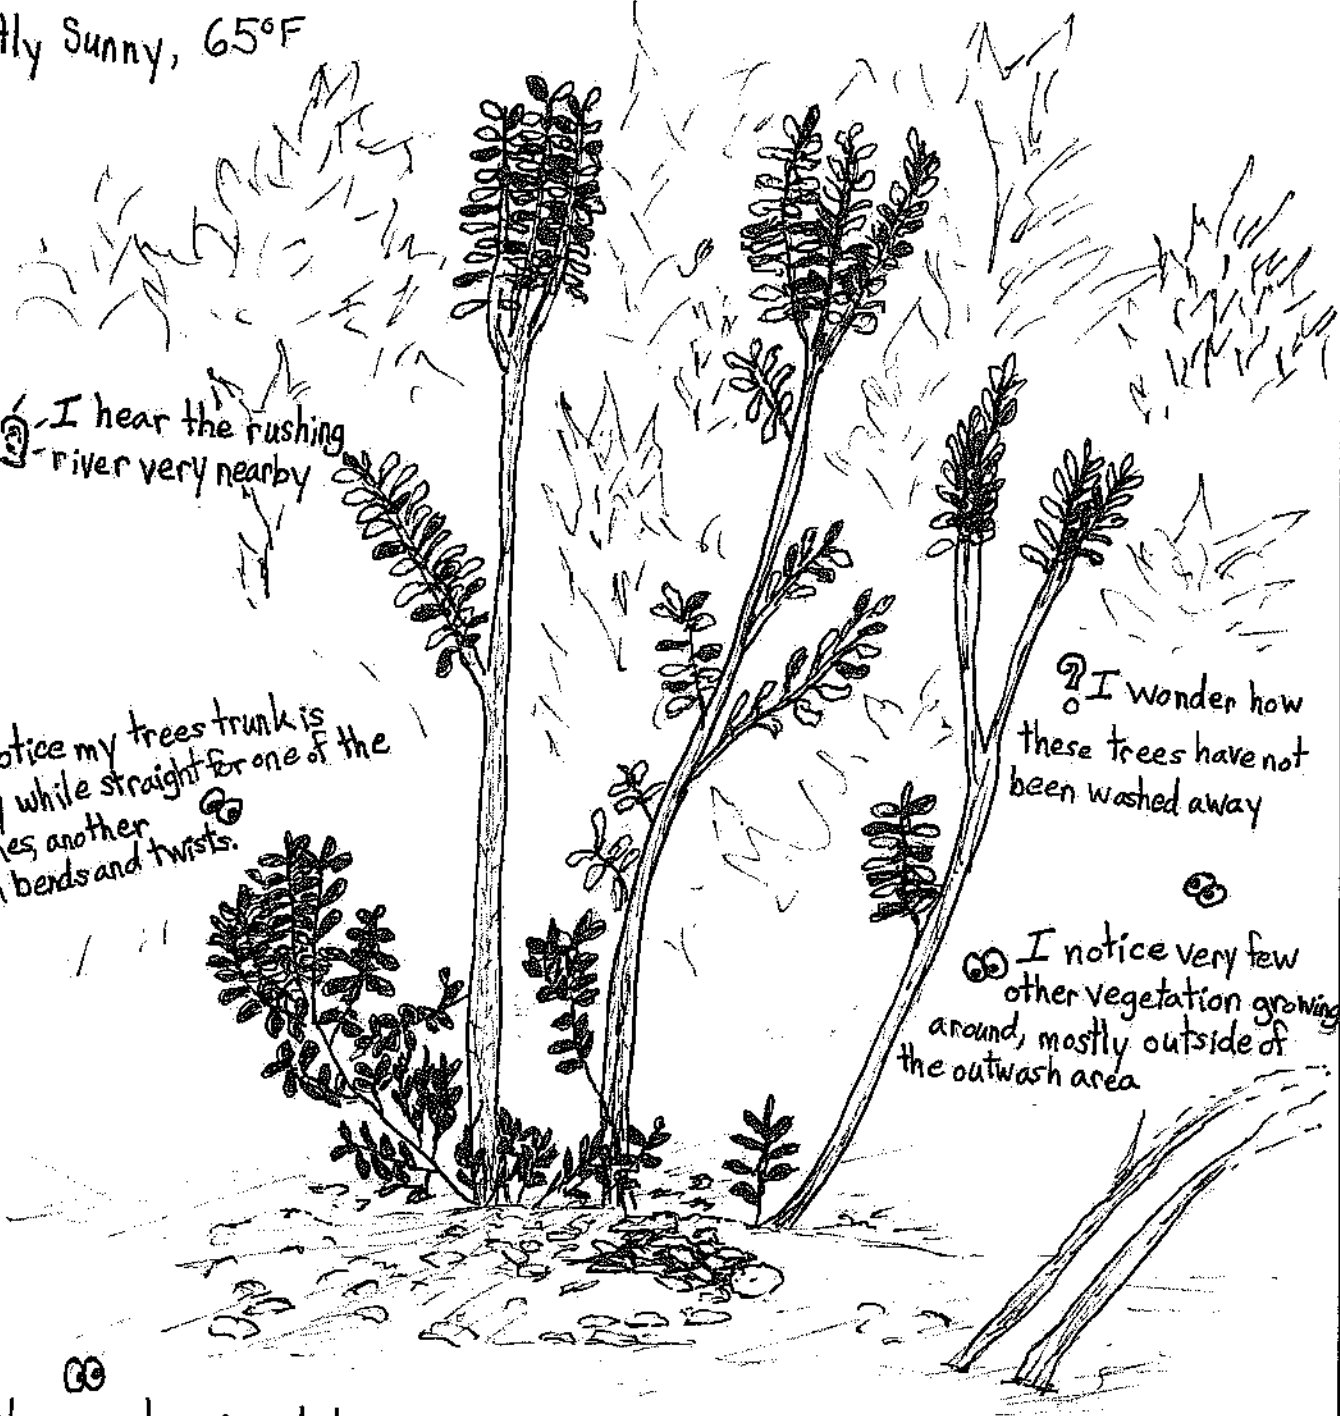 Sunny, 65°F
I hear the rushing
river very nearby
my trees trunk is
while straight for one of the
another
bends and twists.
? I wonder how
these trees have not
been washed away
I notice very few
other vegetation growing
around, mostly outside of
the outwash area